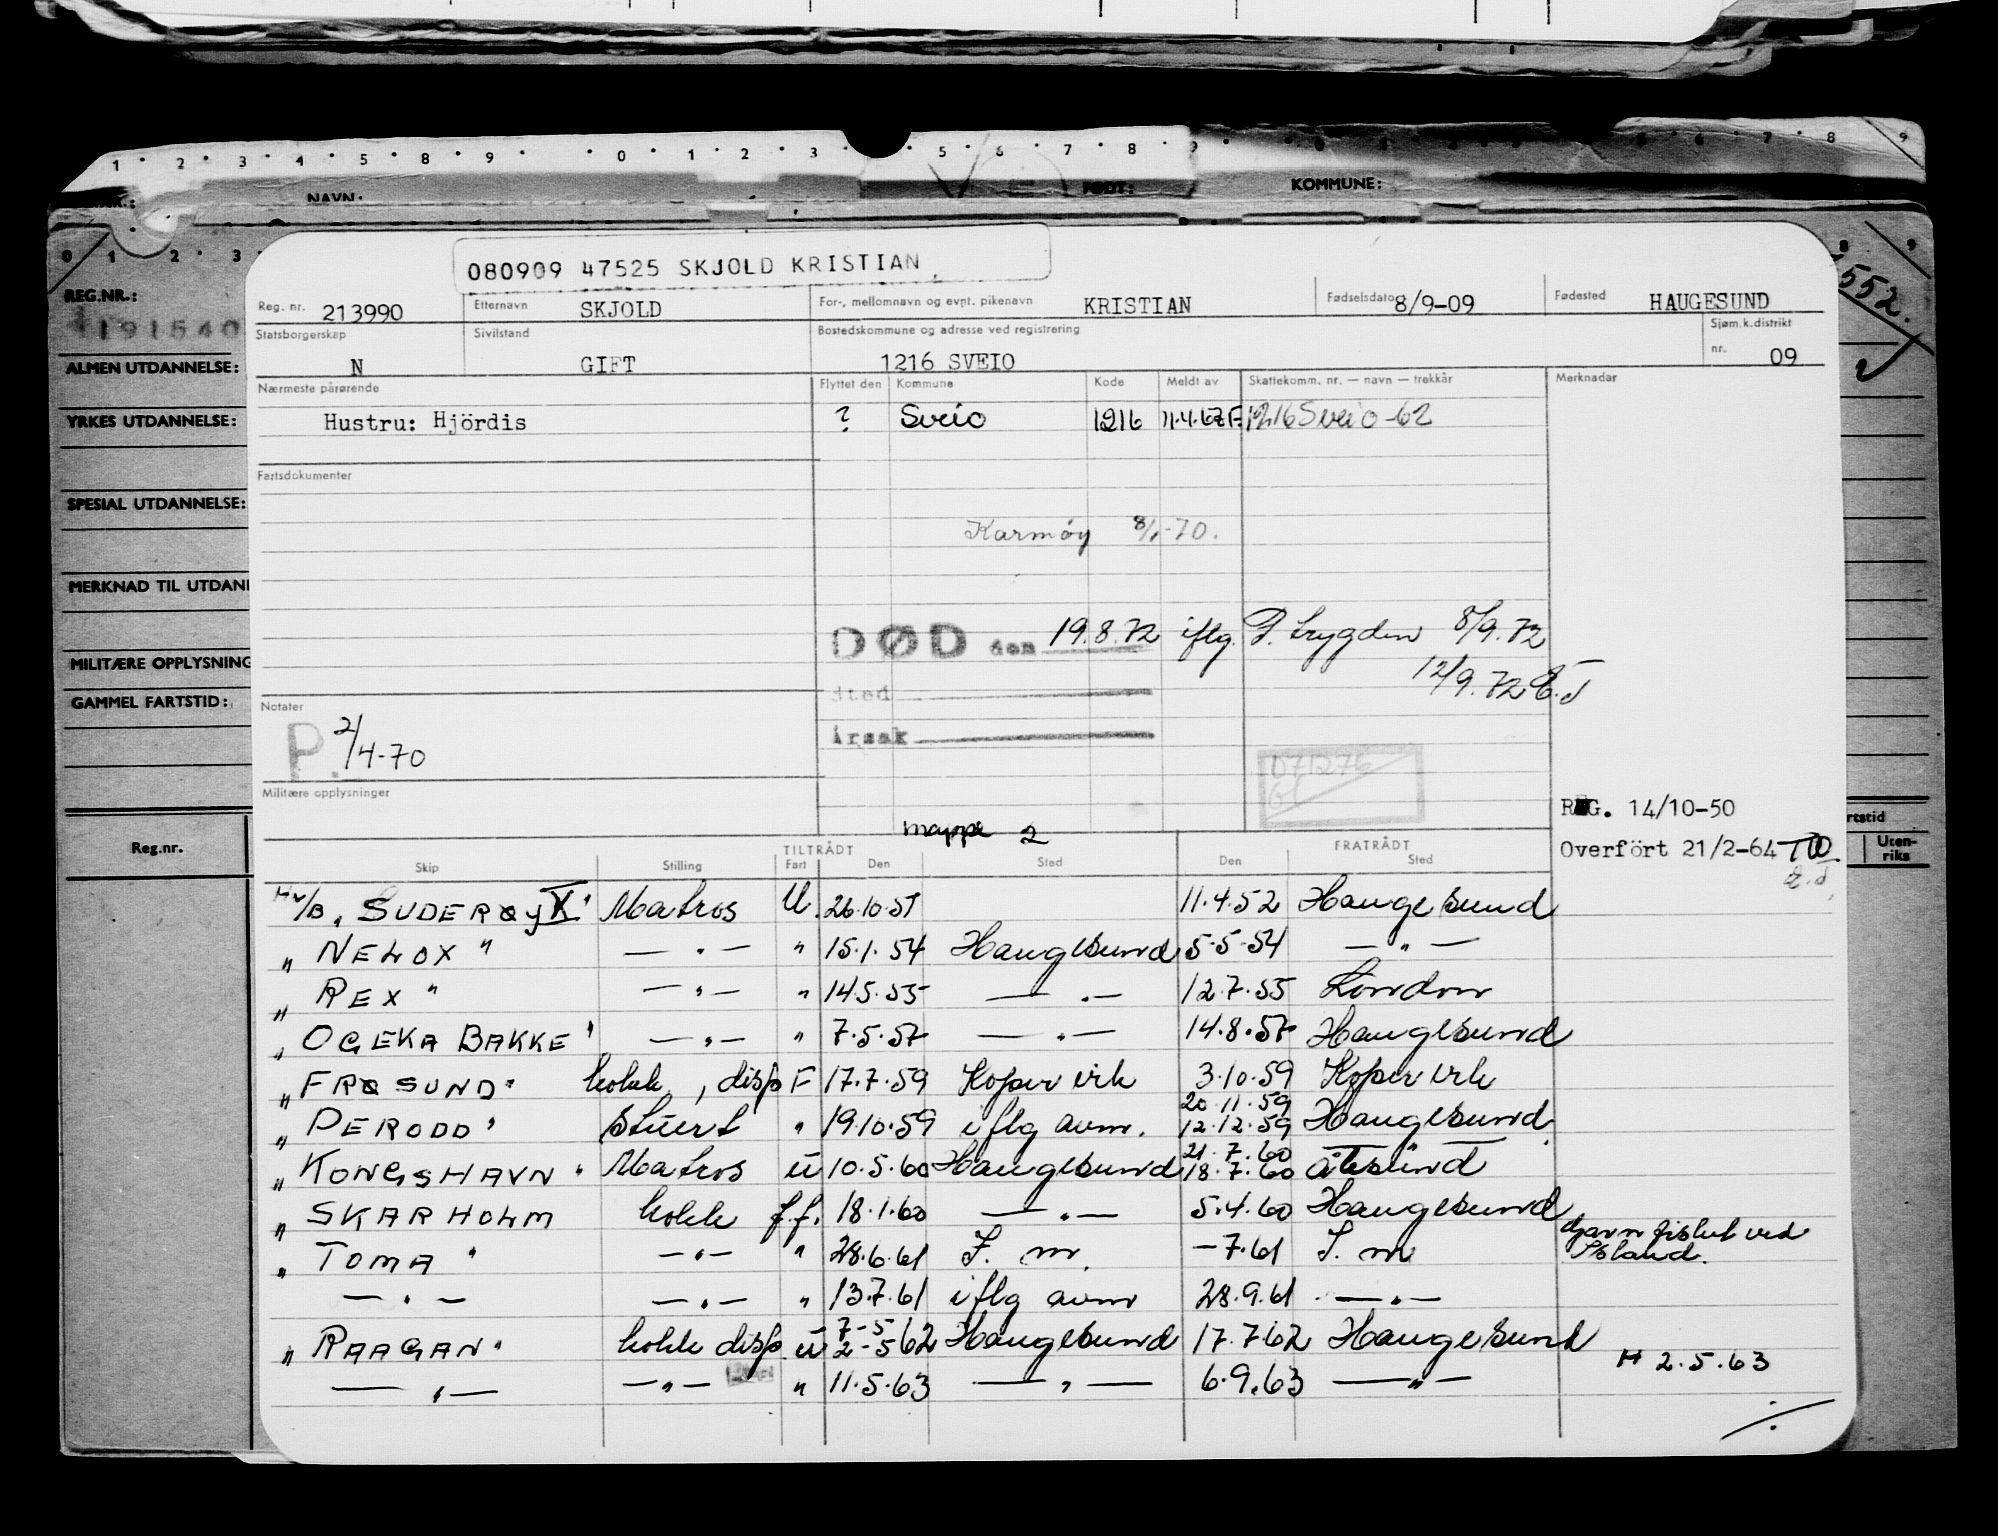 1 2 3 4 5 8 9 0 1 2 3 5 6 7 8 9 0 6 7 8 9
NAVN: FØDT: KOMMUNE:
0 1 2 3 8 9
552.
080909 47525 SKJOLD KRISTIAN
REG.NR.:
191540
Reg. nr. 213990 Etternavn SKJOLD For-, mellomnavn og evnt. pikenavn KRISTIAN Fødselsdato 8/9-09 Fødested HAUGESUND
Statsborgerskap N Sivilstand GIFT Bostedskommune og adresse ved registrering 1216 SVEIO Sjøm.k.distrikt nr. 09
ALMEN UTDANNELSE:
Nærmeste pårørende Flyttet den Kommune Kode Meldt av Skattekomm. nr. — navn — trekkår Merknader
YRKES UTDANNELSE:
Hustru: Hjördis ? Sveio 1216 11.4.62 F. 1216 Sveio -62
Fartsdokumenter
SPESIAL UTDANNELSE:
Karmøy 8/1-70.
MERKNAD TIL UTDANN
DØD den 19.8.72 iflg. P. trygden 8/9.72
MILITÆRE OPPLYSNING
12/9.72
GAMMEL FARTSTID:
Sted
Notater
P. 2/4-70
Årsak
071276
Militære opplysninger
REG. 14/10-50
mappe 2
Overfört 21/2-64
Reg.nr.
rtstid
Uten-
riks
TILTRÅDT FRATRÅDT
Skip Stilling Fart Den Sted Den Sted
M/B "SUDERØY X" Matros U. 26.10.51 11.4.52 Haugesund
" NELOX " — " — " 15.1.54 Haugesund 5.5.54 — " —
" REX " — " — " 14.5.55 — " — 12.7.55 London
" OGEKA BAKKE" — " — " 7.5.57 — " — 14.8.57 Haugesund
" FRØSUND" kokk, disp F 17.7.59 Kopervik 3.10.59 Kopervik
20.11.59
" PERODD" Stuert " 19.10.59 iflg avm. 12.12.59 Haugesund
21.7.60
" KONGSHAVN" Matros u 10.5.60 Haugesund 18.7.60
" SKARHOLM kokk f.f. 18.1.60 — " — 5.4.60 Haugesund
" TOMA " — " — " 28.6.61 I. m. -7.61 I. m Garnfisket ved
Island.
— " — — " — " 13.7.61 iflg avm 28.9.61 — " —
7-5
" RAAGAN" kokk disp u 2-5 62 Haugesund 17.7.62 Haugesund
H 2.5.63
— " — — " — " 11.5.63 — " — 6.9.63 — " —